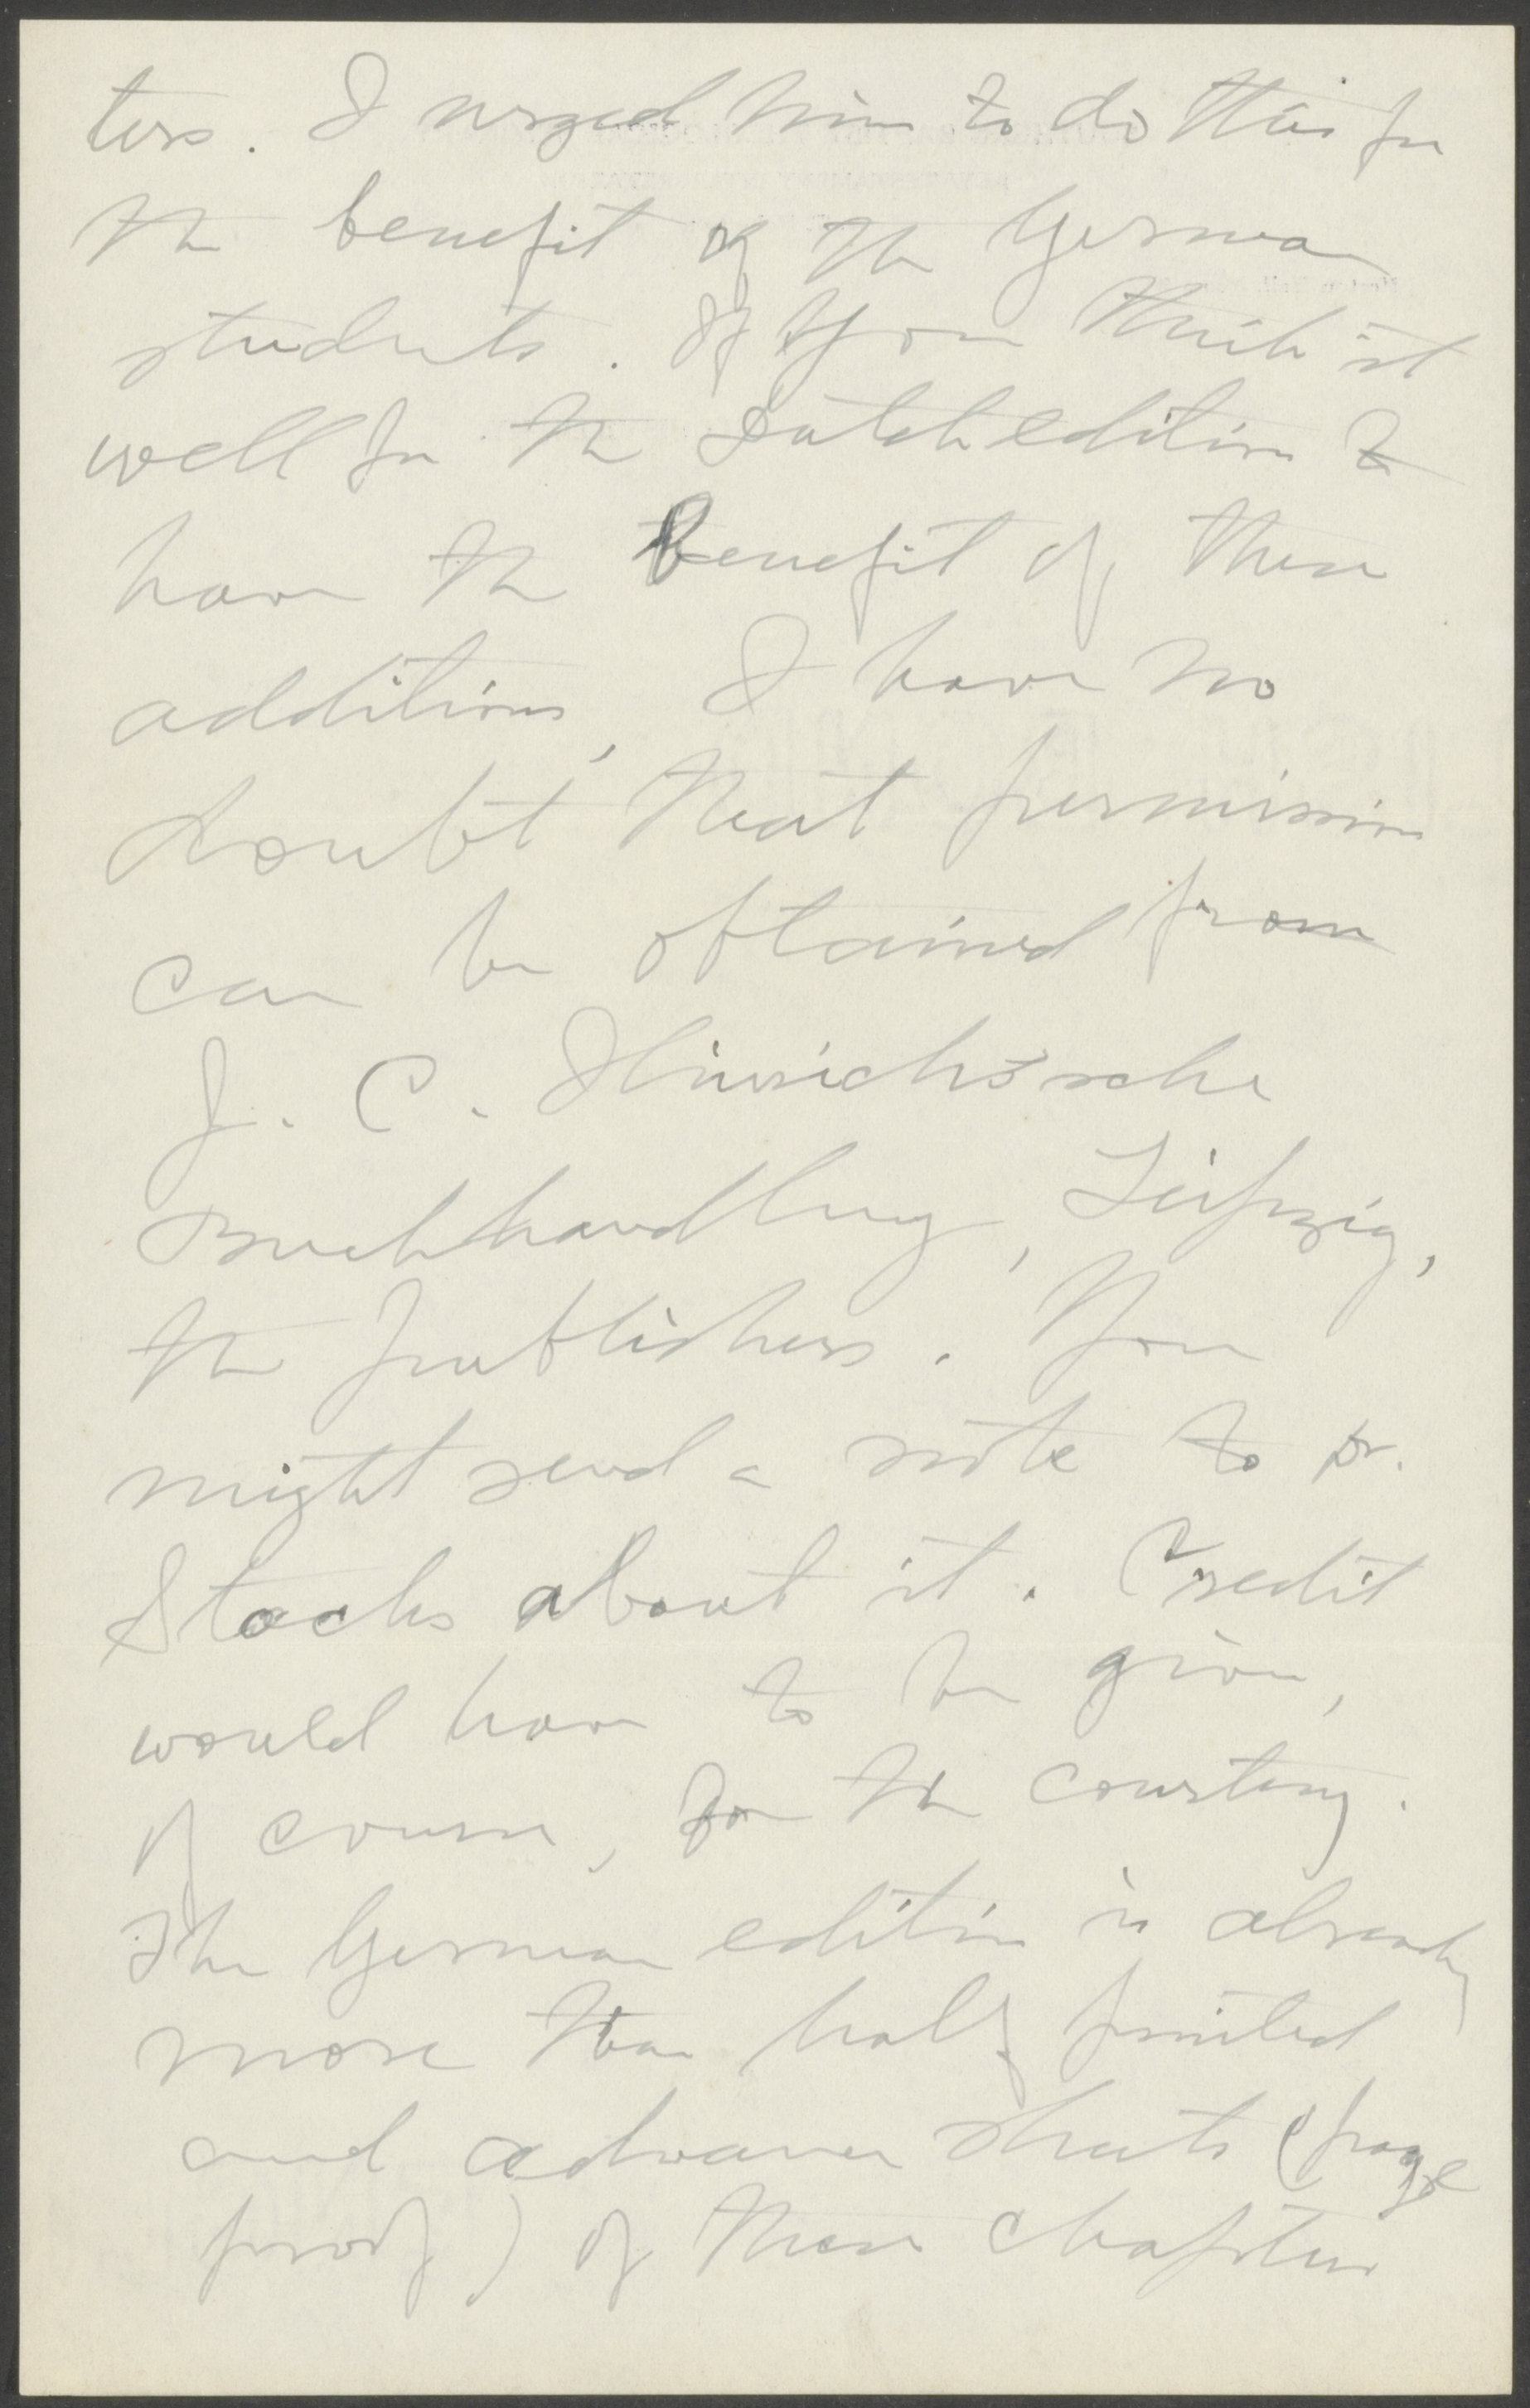 ters. I urged him to do this for
the benefit of the German
students. If you think it
well for the Dutch edition to
have the benefit of these
additions, I have no
doubt that permission
can be obtained from
J. C. Hinrichs'sche
Buchhandlung, Leipzig,
the publishers. You
might send a note to Dr.
Stocks about it. Credit
would have to be given,
of course, for the courtesy.
The German edition is already
more than half printed
and advance sheets (page
proof) of these chapters